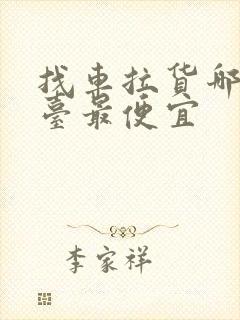 找车拉货哪
臺最便宜
李家祥